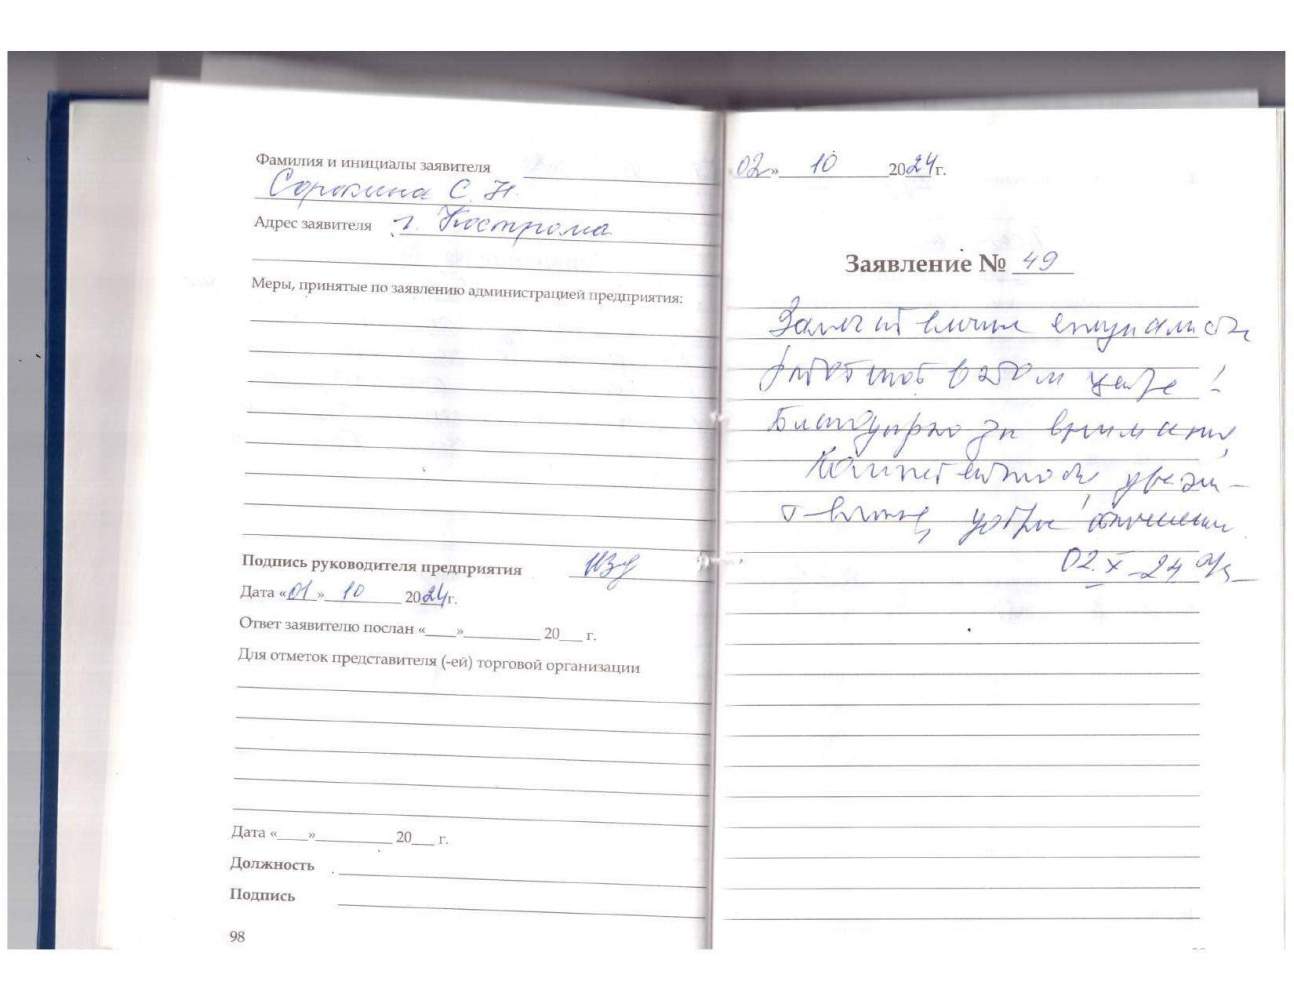 Фамилия и инициалы заявителя
Сорокина С. Н.
Адрес заявителя г. Кострома
Меры, принятые по заявлению администрацией предприятия:
Подпись руководителя предприятия
Дата «01» 10 2024г.
Ответ заявителю послан «____»__________ 20___ г.
Для отметок представителя (-ей) торговой организации
Дата «____»__________ 20___ г.
Должность
Подпись
98
02» 10 2024г.
Заявление № 49
специалисты
в этом
Благодарю за внимание,
доброе отношение.
02.X-24